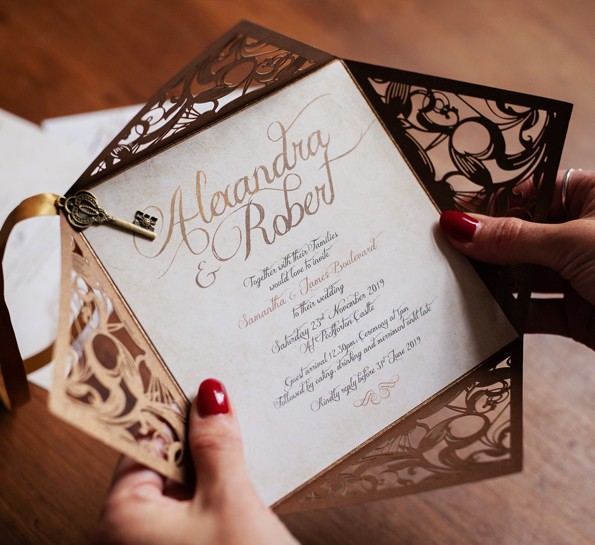 Alexandra
& Robert
Together with their Families
would love to invite
Samantha & James Boulevard
to their wedding
Saturday 23rd November 2019
At Peckforton Castle
Guest arrival 12.30pm, Ceremony at 1pm
Followed by eating, drinking and merriment until late
Kindly reply before by 31st June 2019